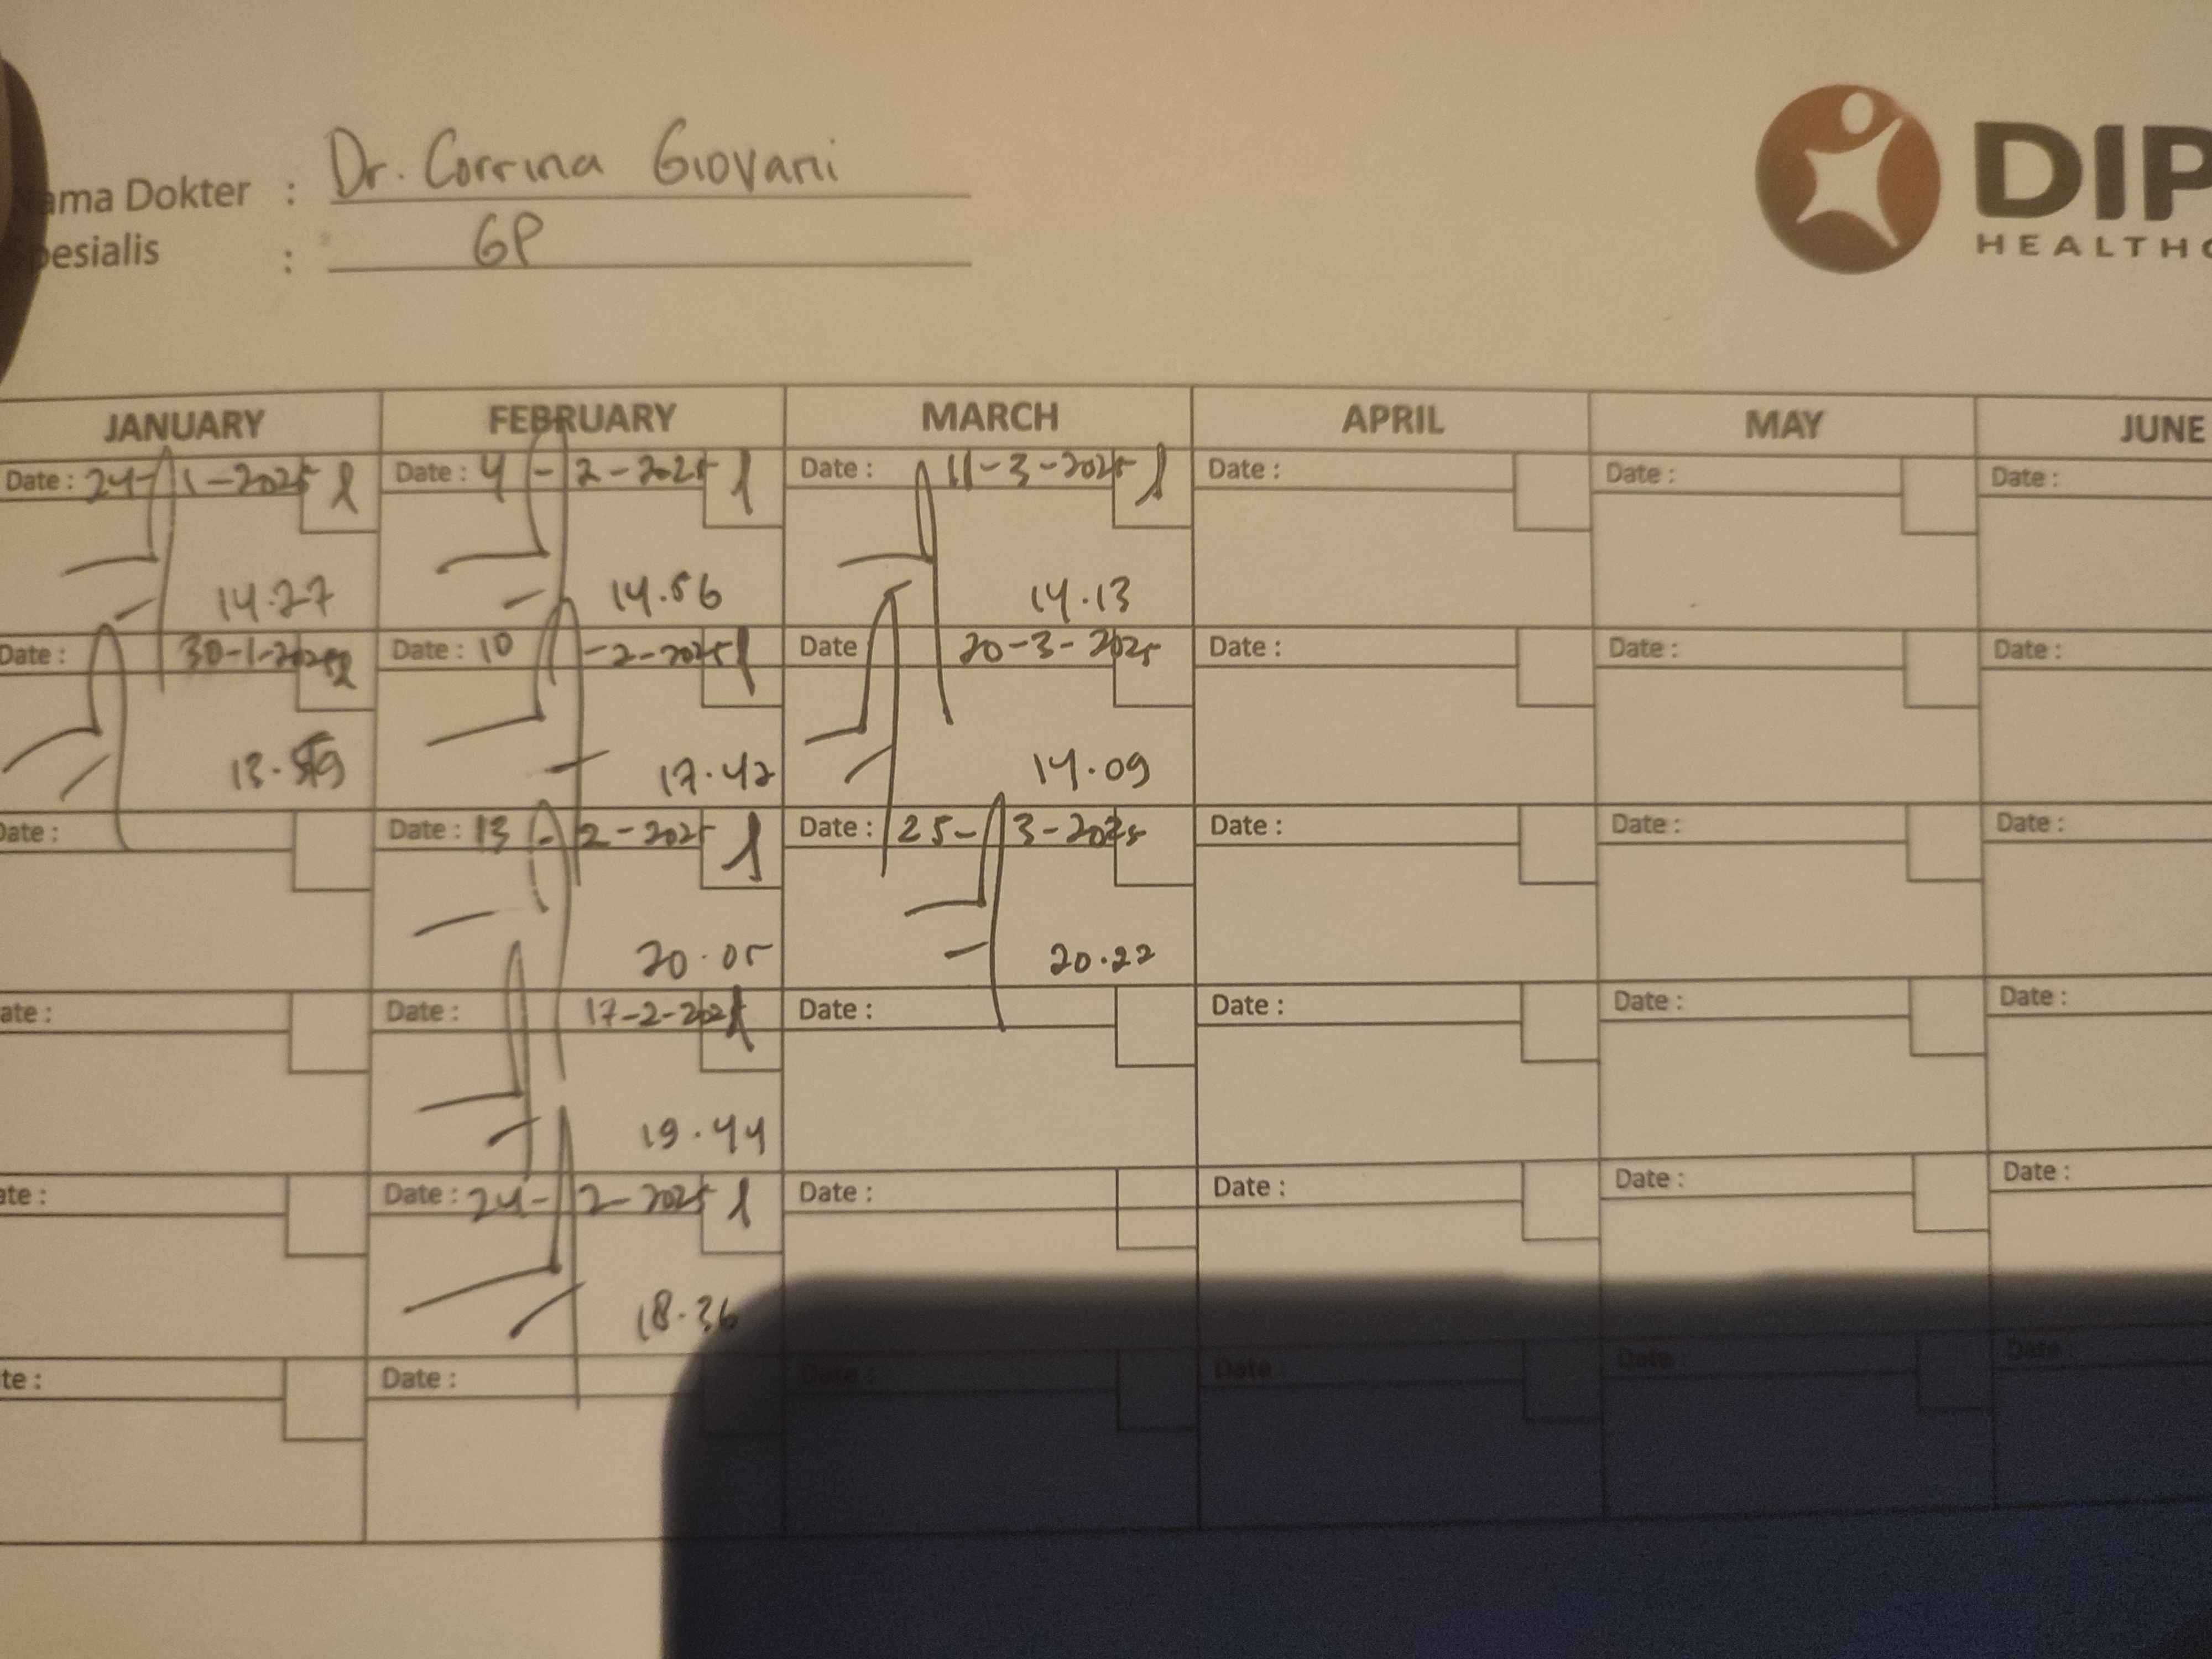 ama Dokter : Dr. Corrina Giovani
pesialis : GP
DIP
HEALTHC
JANUARY FEBRUARY MARCH APRIL MAY JUNE
Date : 24-1-2025 Date : 4-2-2025 Date : 11-3-2025 Date : Date : Date :
14.27 14.56 14.13
Date : 30-1-2025 Date : 10-2-2025 Date 20-3-2025 Date : Date : Date :
13. 17.42 14.09
Date : Date : 13-2-2025 Date : 25-3-2025 Date : Date : Date :
20.05 20.22
ate : Date : 17-2-2025 Date : Date : Date : Date :
19.44
ate : Date : 24-2-2025 Date : Date : Date : Date :
18.36
te : Date : Date : Date Date Date